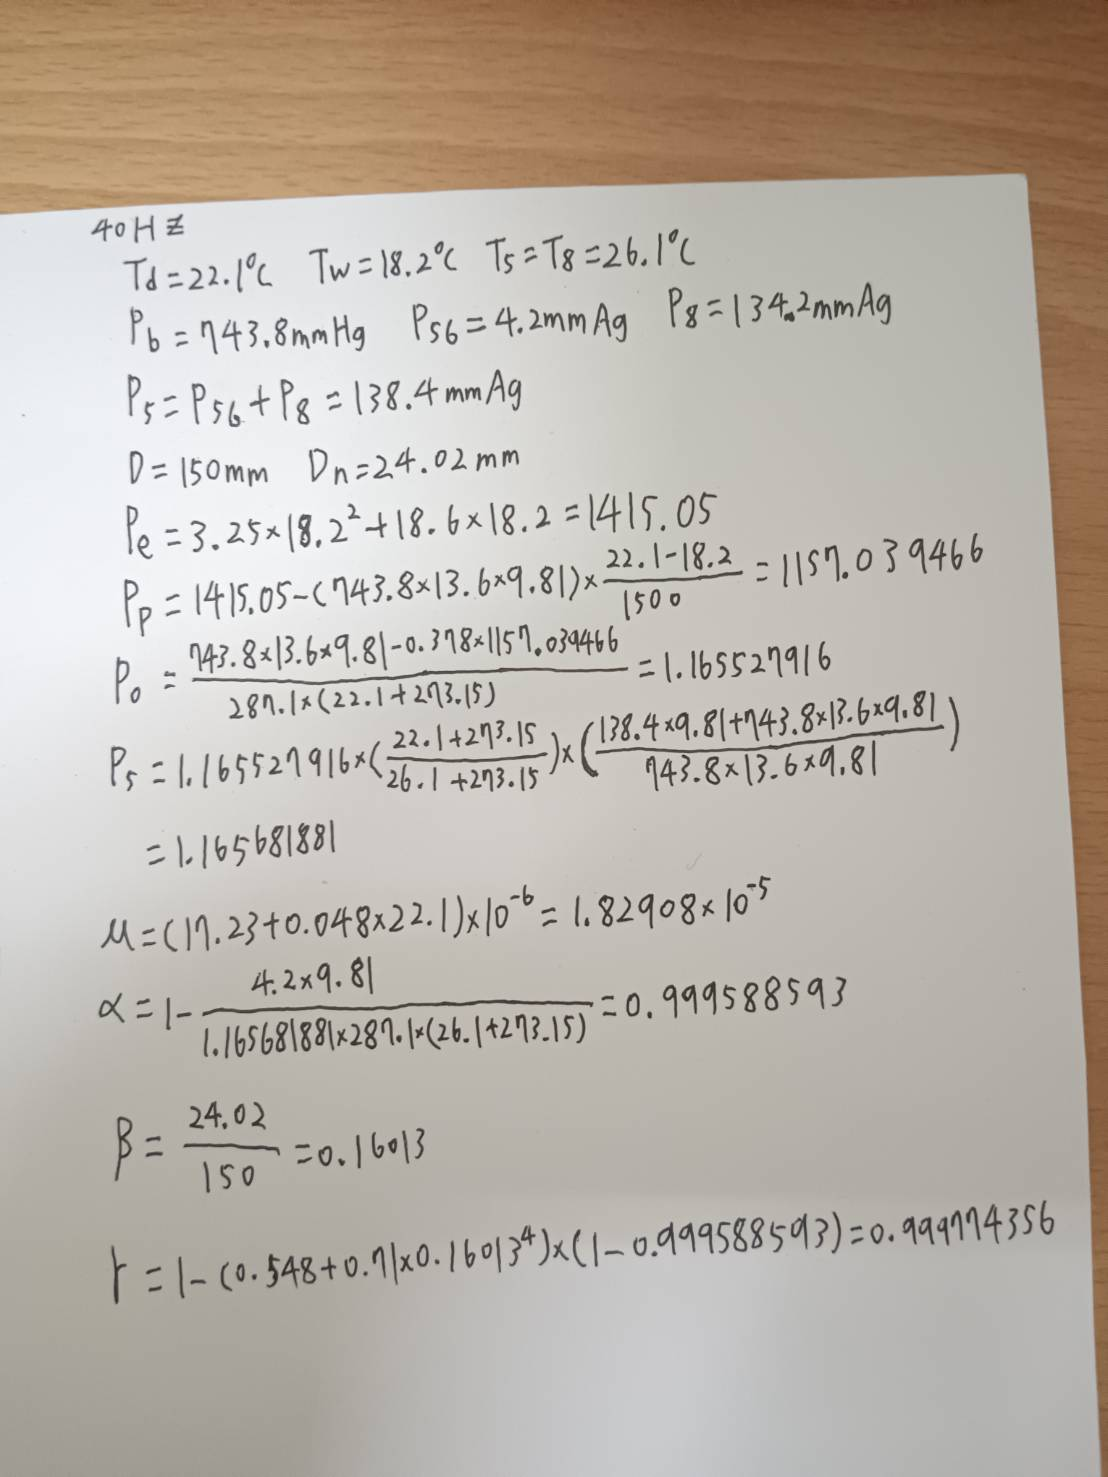 40HZ
Td=22.1°C Tw=18.2°C T5=T8=26.1°C
Pb=743.8mmHg P56=4.2mmAg P8=134.2mmAg
P5=P56+P8=138.4mmAg
D=150mm Dn=24.02mm
Pe=3.25×18.2²+18.6×18.2=1415.05
Pp=1415.05-(743.8×13.6×9.81)×(22.1-18.2)/1500=1157.039466
Po=(743.8×13.6×9.81-0.378×1157.039466)/(287.1×(22.1+273.15))=1.165527916
P5=1.165527916×((22.1+273.15)/(26.1+273.15))×((138.4×9.81+743.8×13.6×9.81)/(743.8×13.6×9.81))
=1.165681881
μ=(17.23+0.048×22.1)×10⁻⁶=1.82908×10⁻⁵
α=1-(4.2×9.81)/(1.165681881×287.1×(26.1+273.15))=0.999588593
β=24.02/150=0.16013
r=1-(0.548+0.71×0.16013⁴)×(1-0.999588593)=0.999774356